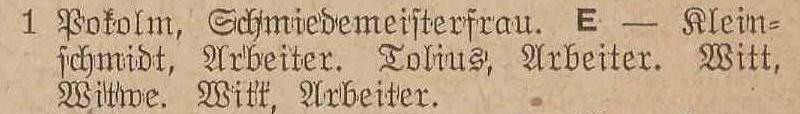 1 Pokolm, Schmiedemeisterfrau. E — Klein-
schmidt, Arbeiter. Tolius, Arbeiter. Witt,
Witwe. Witt, Arbeiter.